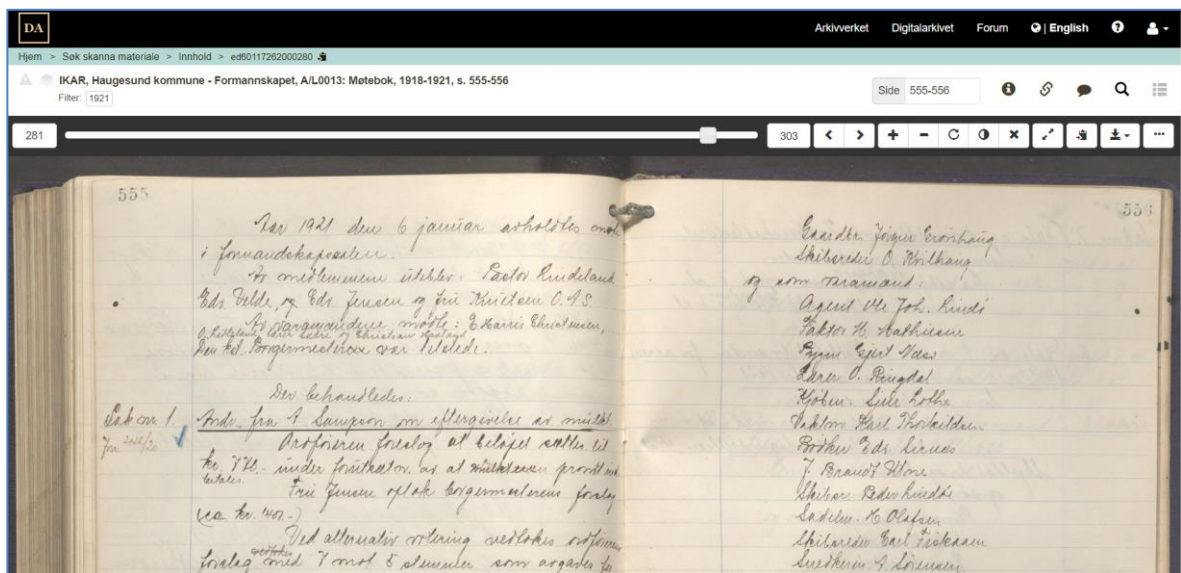 DA
Arkivverket Digitalarkivet Forum | English
Hjem > Søk skanna materiale > Innhold > ed60117262000280
IKAR, Haugesund kommune - Formannskapet, A/L0013: Møtebok, 1918-1921, s. 555-556
Filter: 1921
Side 555-556
281
303
555
Aar 1921 den 6 januar avholdtes møte
i formandskapssalen.
Av medlemmene uteblev: Pastor Rindeland
Edv. Velde, og Edv. Jensen og fru Knutsen O.A.S.
Av varamændene møtte: E. Harris Christensen,
Den kst. Borgermester var tilstede.
Der behandledes:
Sak nr. 1.
Andr. fra A. Sampson om eftergivelse av mulkt.
Ordføreren foreslog at beløpet sættes til
kr. under forutsetn. av at
betales.
Fru Jensen optok borgermesterens forslag
(ca kr. 1400.-)
Ved alternativ votering vedtokes ordførerens
forslag med 7 mot 5 stemmer som avgaves for
556
Gaardbr. Jørgen Grønhaug
Skibsreder O. Kvilhaug
og som varamænd:
Agent Ole Joh.
Faktor H. Mathiesen
Gjert Næss
Lærer O. Ringdal
Kjøbm. Lothe
Faktor Karl Thorkildsen
Edv.
J. Brandt
Skibsr. Peder Lindøe
Sadelm. H. Olafsen
Skibsreder Carl Fiskaaen
A. Sørensen